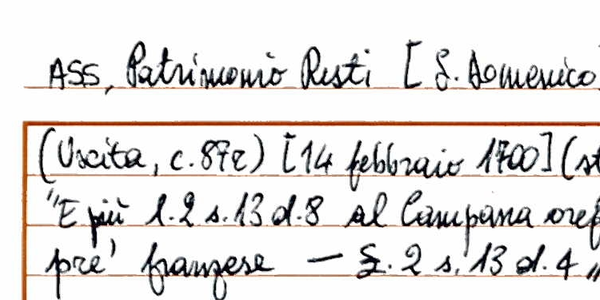 ASS, Patrimonio Resti [ S. Domenico
(Uscita, c. 87r) [14 febbraio 1700] (st
"E più l. 2 s. 13 d. 8 al Campana oref
pre' franzese — £. 2 s. 13 d. 4"